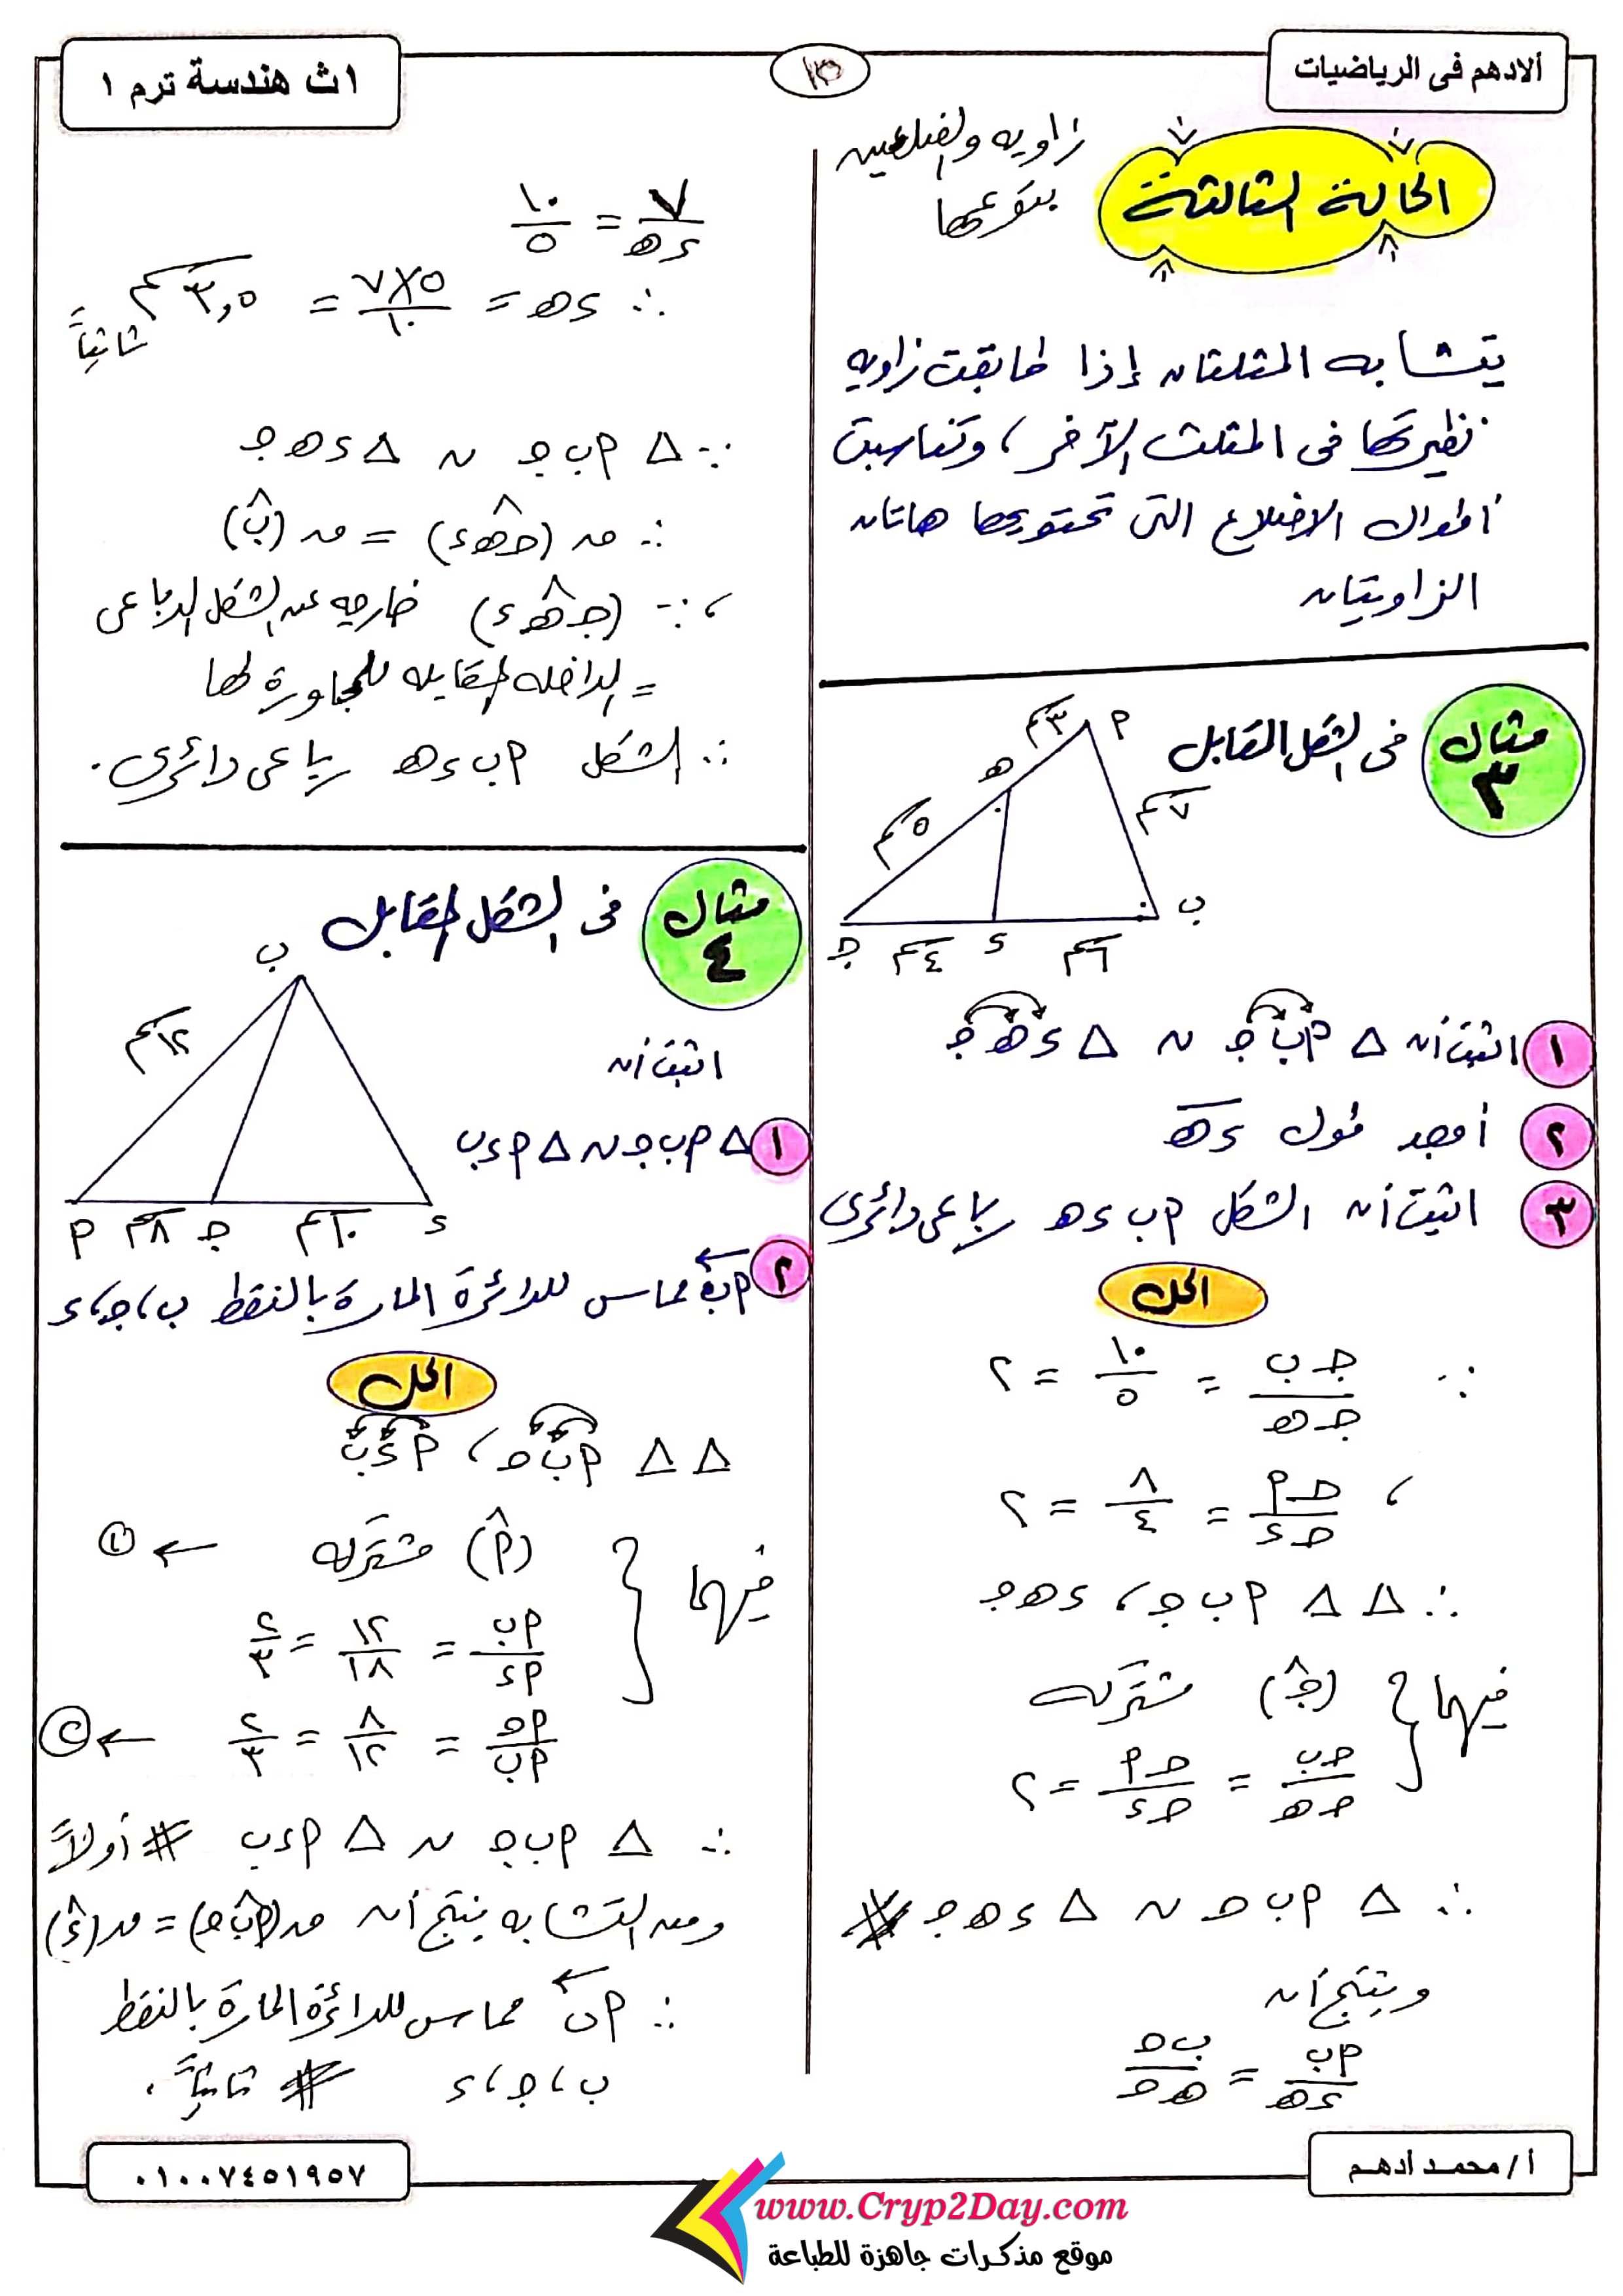 ألادهم فى الرياضيات
١٣
١ث هندسة ترم ١
الحالة الثالثة
زاويه والضلعين
يتشابه المثلثان إذا طابقت زاويه
نظيرتها فى المثلث الآخر ، وتناسبت
أطوال الاضلاع التى تحتويها هاتان
الزاويتان
مثال ٣
فى الشكل المقابل
٣سم
٧سم
٥سم
٤سم
٦سم
١ اثبت أن △ أ ب ج ~ △ ء هـ ج
٢ أوجد طول ء هـ
٣ اثبت أن الشكل أ ب ء هـ رباعى دائرى
الحل
∵ ج ب / ج هـ = ١٠ / ٥ = ٢
، ج أ / ج ء = ٨ / ٤ = ٢
∴ △ △ أ ب ج ، ء هـ ج
فيهما { (ج) مشتركه
ج ب / ج هـ = ج أ / ج ء = ٢
∴ △ أ ب ج ~ △ ء هـ ج #
وينتج أن
أ ب / ء هـ = ب ج / هـ ج
٧ / ء هـ = ١٠ / ٥
∴ ء هـ = ٥×٧ / ١٠ = ٣,٥ سم ثانياً
∵ △ أ ب ج ~ △ ء هـ ج
∴ ق (ج هـ ء) = ق (ب)
، ∵ (ج هـ ء) خارجه عن الشكل الرباعى
= الداخله المقابله للمجاورة لها
∴ الشكل أ ب ء هـ رباعى دائرى .
مثال ٤
فى الشكل المقابل
ب
١٢سم
أ ٨سم ج ١٠سم ء
اثبت أن
١ △ أ ب ج ~ △ أ ء ب
٢ أ ب مماس للدائرة المارة بالنقط ب ، ج ، ء
الحل
△ △ أ ب ج ، أ ء ب
فيهما { (أ) مشتركه ← ①
أ ب / أ ء = ١٢ / ١٨ = ٢ / ٣
أ ج / أ ب = ٨ / ١٢ = ٢ / ٣ ← ②
∴ △ أ ب ج ~ △ أ ء ب # أولاً
ومن التشابه ينتج أن ق (أ ب ج) = ق (ء)
∴ أ ب مماس للدائرة المارة بالنقط
ب ، ج ، ء # ثانياً .
أ / محمد أدهم
٠١٠٠٧٤٥١٩٥٧
www.Cryp2Day.com
موقع مذكرات جاهزة للطباعة